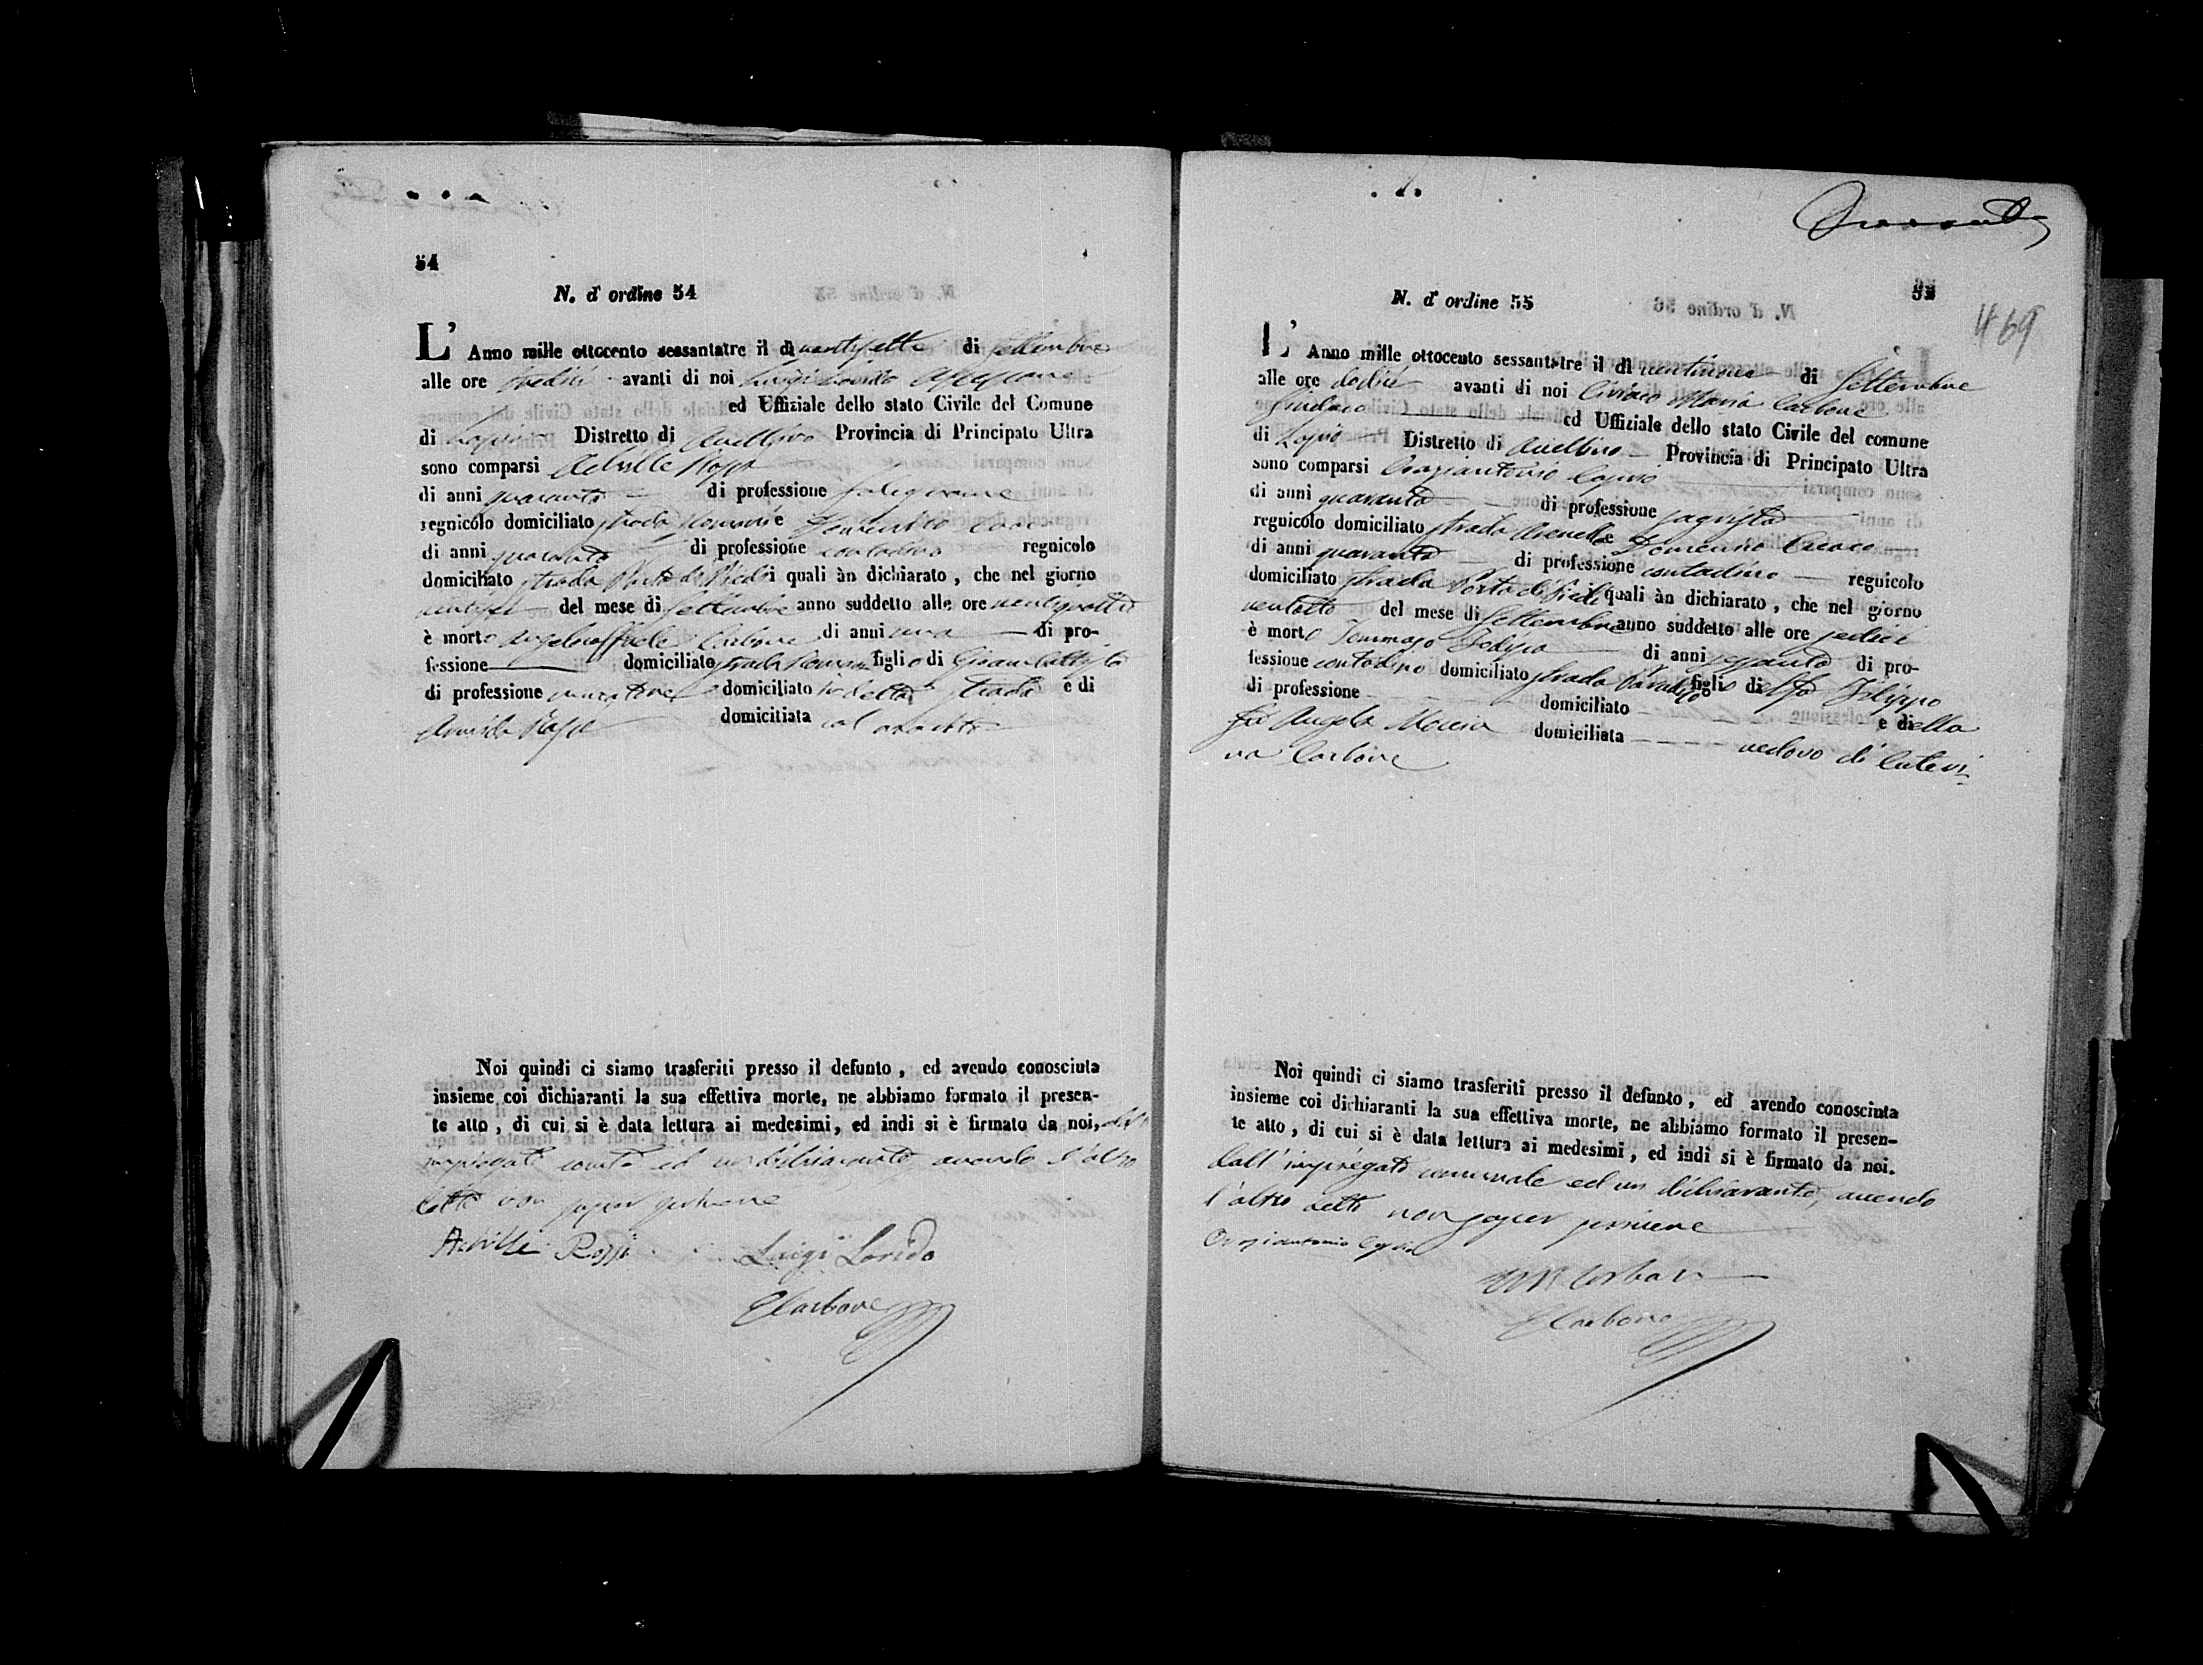 54
N. d' ordine 54
L' Anno mille ottocento sessantatre il di ventisette di Settembre
alle ore tredici avanti di noi Luigi
ed Uffiziale dello stato Civile del Comune
di Lapio Distretto di Avellino Provincia di Principato Ultra
sono comparsi Achille Rossi
di anni quaranta di professione falegname
regnicolo domiciliato strada e Domenico
di anni quaranta di professione contadino regnicolo
domiciliato strada Porta di Piedi i quali àn dichiarato, che nel giorno
ventisei del mese di Settembre anno suddetto alle ore ventiquattro
è morto Angeloraffaele Carbone di anni uno di pro-
fessione domiciliato strada figlio di Giambattista
di professione domiciliato in detta strada e di
Rossi domicitiata col marito
Noi quindi ci siamo trasferiti presso il defunto, ed avendo conosciuta
insieme coi dichiaranti la sua effettiva morte, ne abbiamo formato il presen-
te atto, di cui si è data lettura ai medesimi, ed indi si è firmato da noi, dall'
impiegato ed un dichiarante avendo l'altro
detto non saper scrivere
Achille Rossi Luigi
Carbone
55
469
N. d' ordine 55
L' Anno mille ottocento sessantatre il di ventinove di Settembre
alle ore dodici avanti di noi Ciriaco Maria Carbone
Sindaco ed Uffiziale dello stato Civile del comune
di Lapio Distretto di Avellino Provincia di Principato Ultra
sono comparsi Oraziantonio
di anni quaranta di professione sagrista
regnicolo domiciliato strada Arenella e Domenico
di anni quaranta di professione contadino regnicolo
domiciliato strada Porta di Piedi quali àn dichiarato, che nel giorno
ventotto del mese di Settembre anno suddetto alle ore sedici
è morto Tommaso di anni sessanta di pro-
fessione contadino domiciliato strada figlio di Filippo
di professione domiciliato e di della
fù Angela domiciliata vedovo di Cateri-
na Carbone
Noi quindi ci siamo trasferiti presso il defunto, ed avendo conosciuta
insieme coi dichiaranti la sua effettiva morte, ne abbiamo formato il presen-
te atto, di cui si è data lettura ai medesimi, ed indi si è firmato da noi.
dall'impiegato comunale ed un dichiarante, avendo
l'altro detto non saper scrivere
Oraziantonio
Carbone